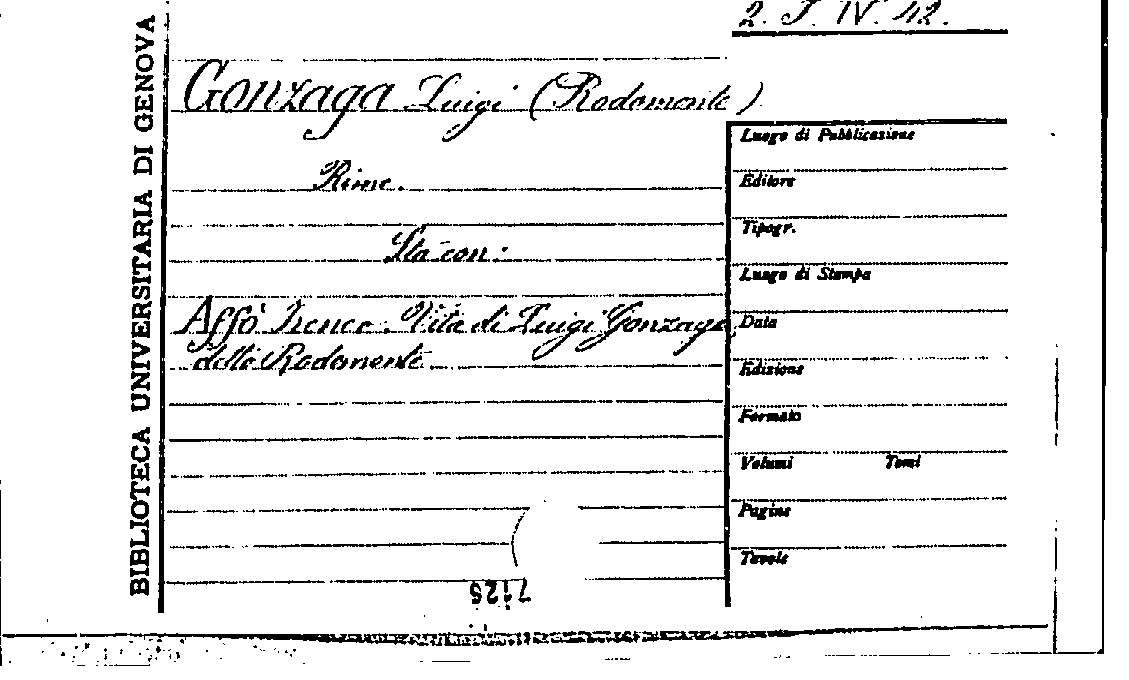 2. J. IV. 42.
BIBLIOTECA UNIVERSITARIA DI GENOVA
Gonzaga Luigi (Rodomonte)
Rime.
Sta con:
Affò Ireneo. Vita di Luigi Gonzaga
detto Rodomonte
Luogo di Pubblicazione
Editore
Tipogr.
Luogo di Stampa
Data
Edizione
Formato
Volumi Tomi
Pagine
Tavole